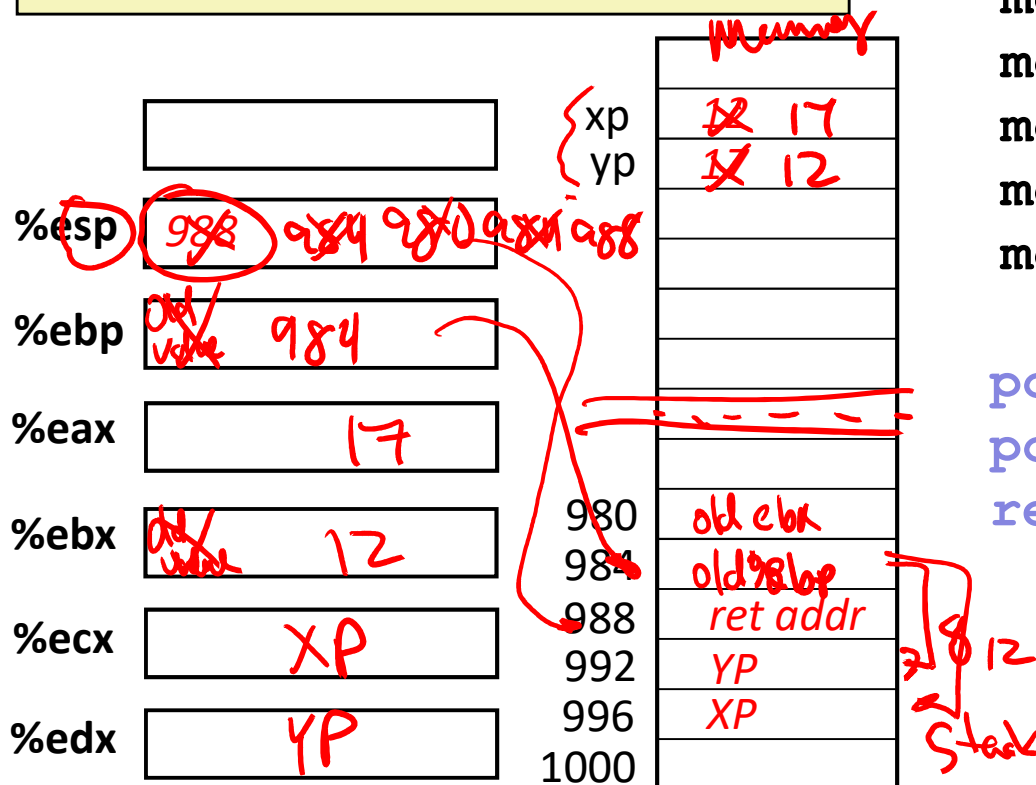 Memory
xp 12 17
yp 17 12
%esp 988 984 980 984 988
%ebp old value 984
%eax 17
%ebx old value 12
%ecx XP
%edx YP
980 old ebx
984 old %ebp
988 ret addr
992 YP
996 XP
1000
8 12
Stack
m
m
m
m
m
po
po
re